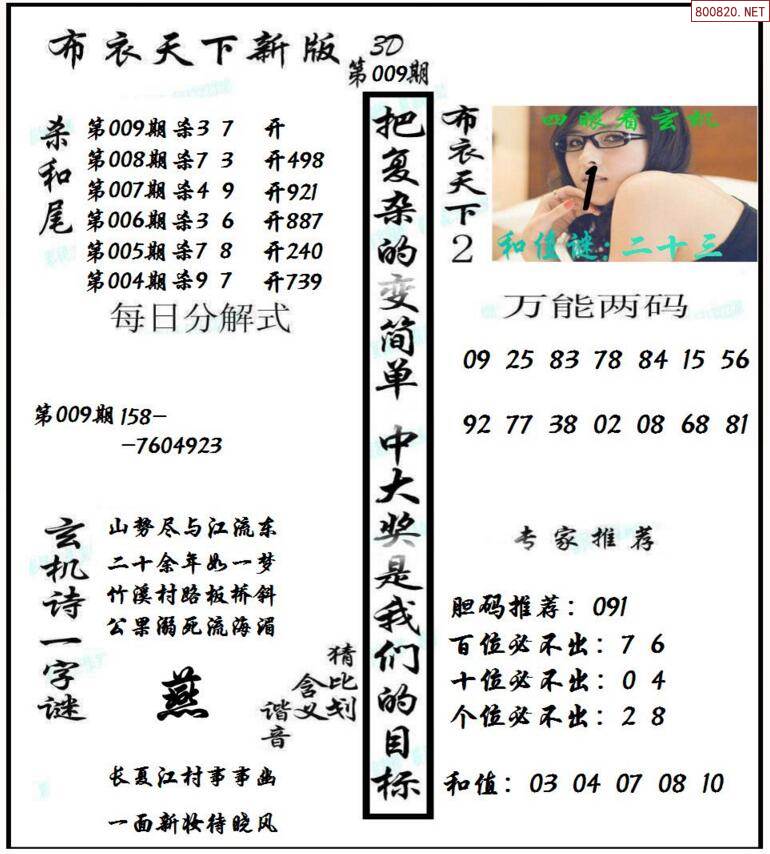 800820.NET
布衣天下新版 3D
第009期
杀和尾
第009期 杀3 7 开
第008期 杀7 3 开498
第007期 杀4 9 开921
第006期 杀3 6 开887
第005期 杀7 8 开240
第004期 杀9 7 开739
每日分解式
第009期 158-
-7604923
玄机诗一字谜
山势尽与江流东
二十余年如一梦
竹溪村路板桥斜
公果溺死流海湄
燕
猜比划
含义
谐音
长夏江村事事幽
一面新妆待晓风
把复杂的变简单 中大奖是我们的目标
布衣天下2
四眼看玄机
1
和值谜:二十三
万能两码
09 25 83 78 84 15 56
92 77 38 02 08 68 81
专家推荐
胆码推荐:091
百位必不出:7 6
十位必不出:0 4
个位必不出:2 8
和值:03 04 07 08 10